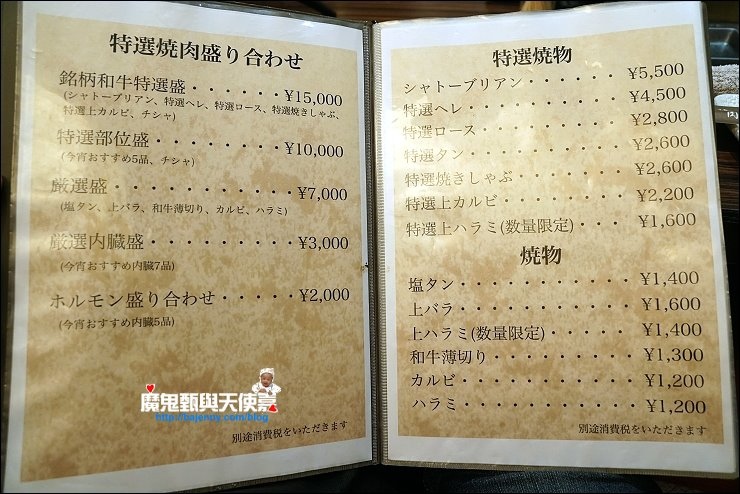 特選焼肉盛り合わせ
銘柄和牛特選盛・・・・・・¥15,000
(シャトーブリアン、特選ヘレ、特選ロース、特選焼きしゃぶ、
特選上カルビ、チシャ)
特選部位盛・・・・・・・・¥10,000
(今宵おすすめ5品、チシャ)
厳選盛・・・・・・・・・・¥7,000
(塩タン、上バラ、和牛薄切り、カルビ、ハラミ)
厳選内臓盛・・・・・・・・¥3,000
(今宵おすすめ内臓7品)
ホルモン盛り合わせ・・・・・¥2,000
(今宵おすすめ内臓5品)
魔鬼甄與天使嘉
http://bajenny.com/blog
別途消費税をいただきます
特選焼物
シャトーブリアン・・・・・・¥5,500
特選ヘレ・・・・・・・・・・¥4,500
特選ロース・・・・・・・・・¥2,800
特選タン・・・・・・・・・・¥2,600
特選焼きしゃぶ・・・・・・・¥2,600
特選上カルビ・・・・・・・・¥2,200
特選上ハラミ(数量限定)・・・・¥1,600
焼物
塩タン・・・・・・・・・・・¥1,400
上バラ・・・・・・・・・・・¥1,600
上ハラミ(数量限定)・・・・・¥1,400
和牛薄切り・・・・・・・・・¥1,300
カルビ・・・・・・・・・・・¥1,200
ハラミ・・・・・・・・・・・¥1,200
別途消費税をいただきます